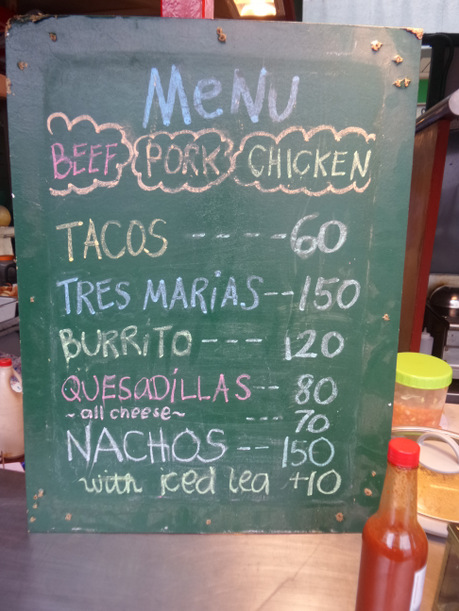 MeNU
BEEF PORK CHICKEN
TACOS ----60
TRES MARiAS--150
BURRiTO --- 120
QUESadiLLAS-- 80
~all cheese~ --- 70
NACHOS -- 150
with iced tea +10